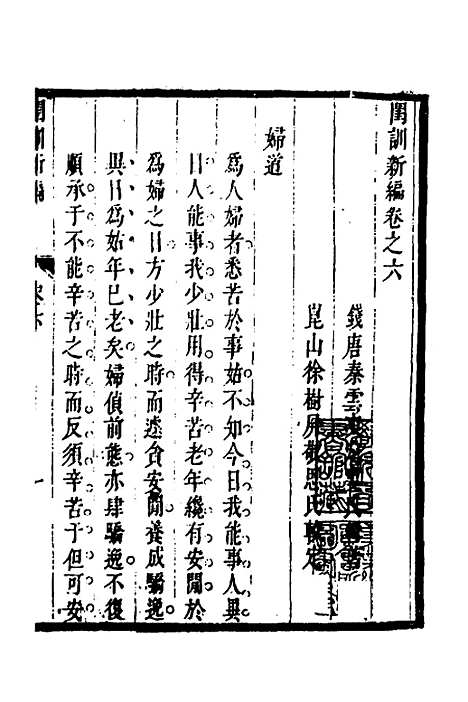 閨訓新編卷之六
錢唐秦雲
崑山徐樹屏敬思氏較定
婦道
為人婦者悉苦於事姑不知今日我能事人異
日人能事我少壯用得辛苦老年纔有安閒於
為婦之日方少壯之時而遽貪安閒養成驕逸
異日為姑年已老矣婦偵前態亦肆驕逸不復
順承于不能辛苦之時而反須辛苦于但可安
閨訓新編